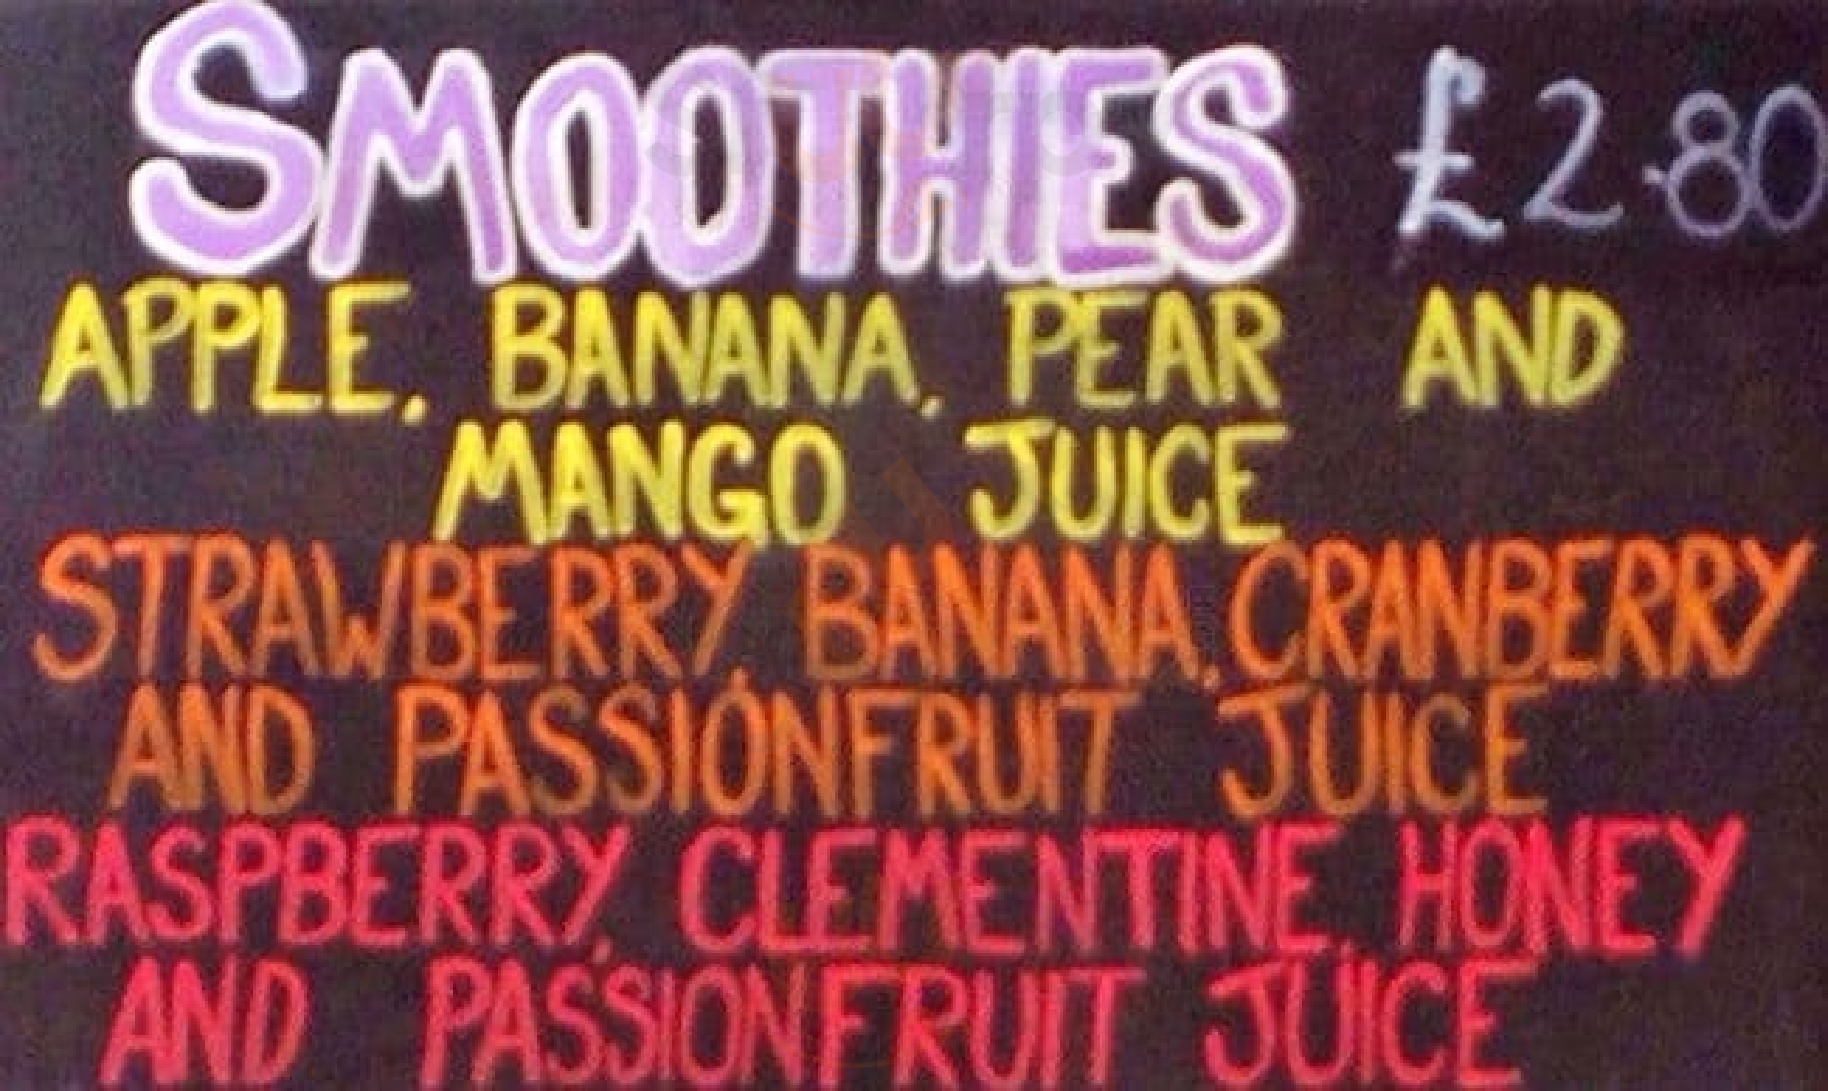 SMOOTHIES £2.80
APPLE, BANANA, PEAR AND
MANGO JUICE
STRAWBERRY, BANANA, CRANBERRY
AND PASSIONFRUIT JUICE
RASPBERRY, CLEMENTINE, HONEY
AND PASSIONFRUIT JUICE